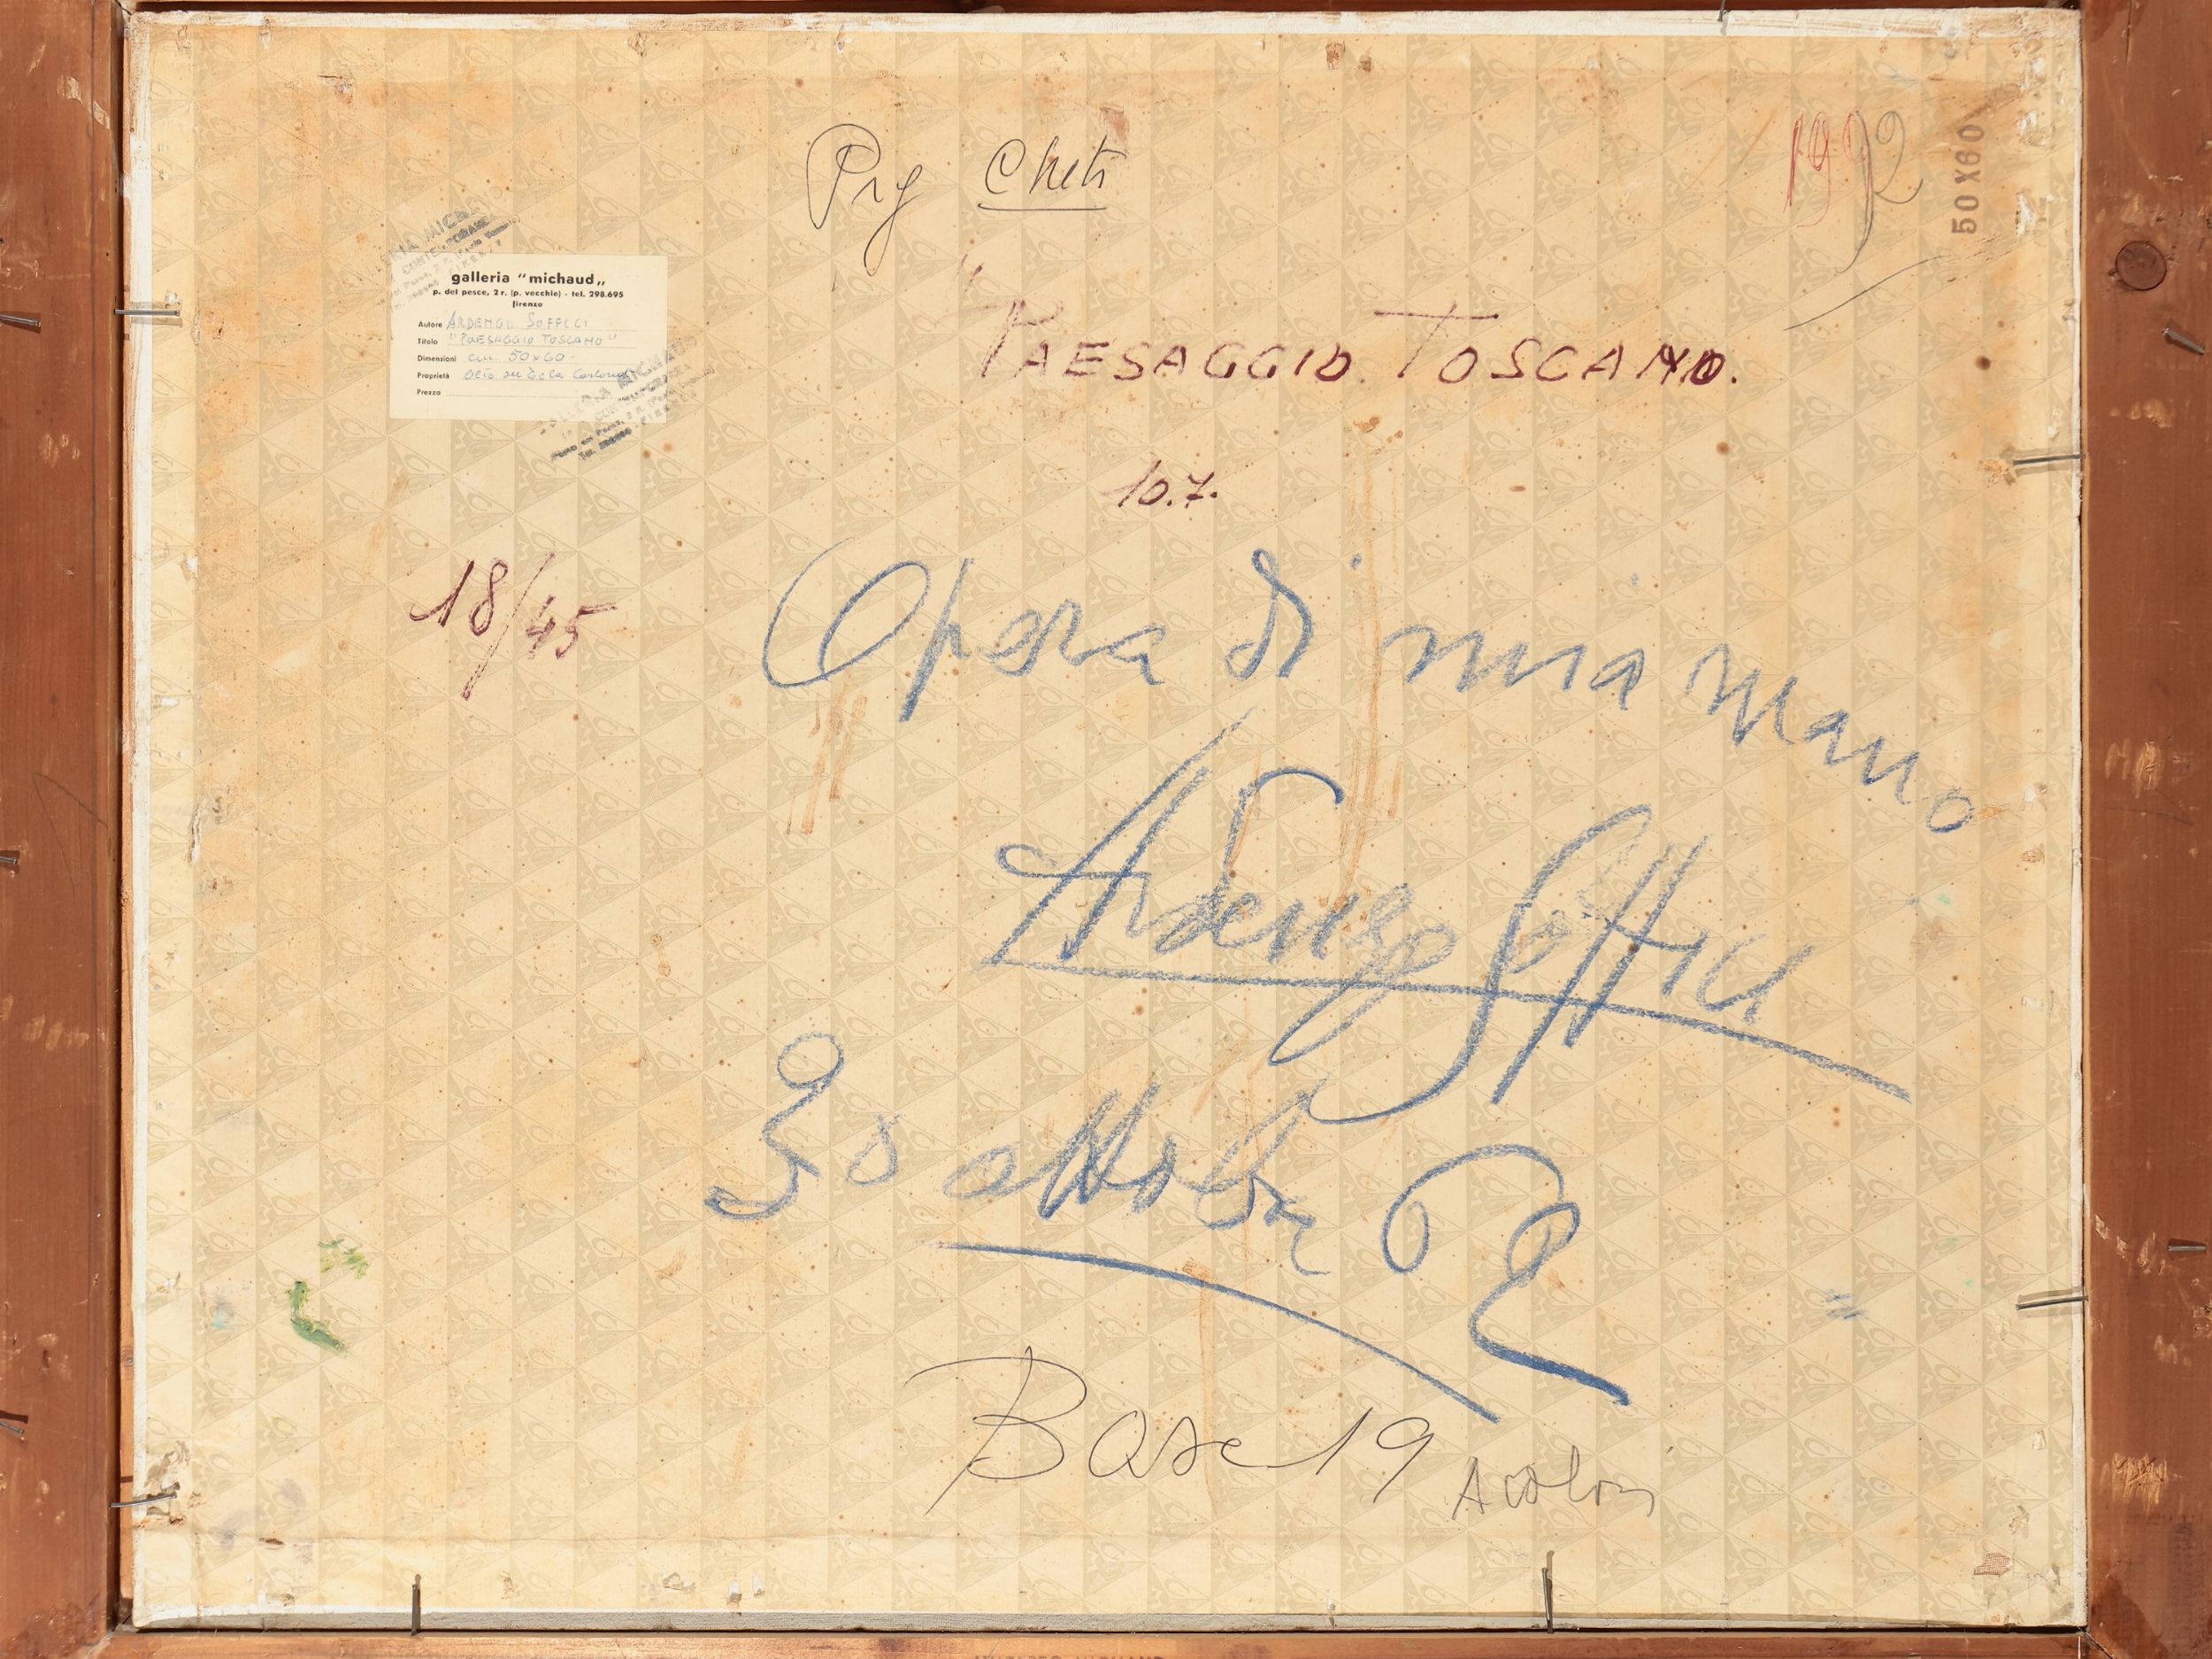 Prg Cheti
1992
50X60
galleria "michaud„
p. del pesce, 2 r. (p. vecchio) - tel. 298.695
firenze
Autore ARDENGO SOFFICI
Titolo "PAESAGGIO TOSCANO"
Dimensioni cm. 50x60
Proprietà Olio su Tela Cartonata
Prezzo
"PAESAGGIO. TOSCANO.
10.7.
18/45
Opera di mia mano
Ardengo Soffici
30 ottobre 62
Base 19